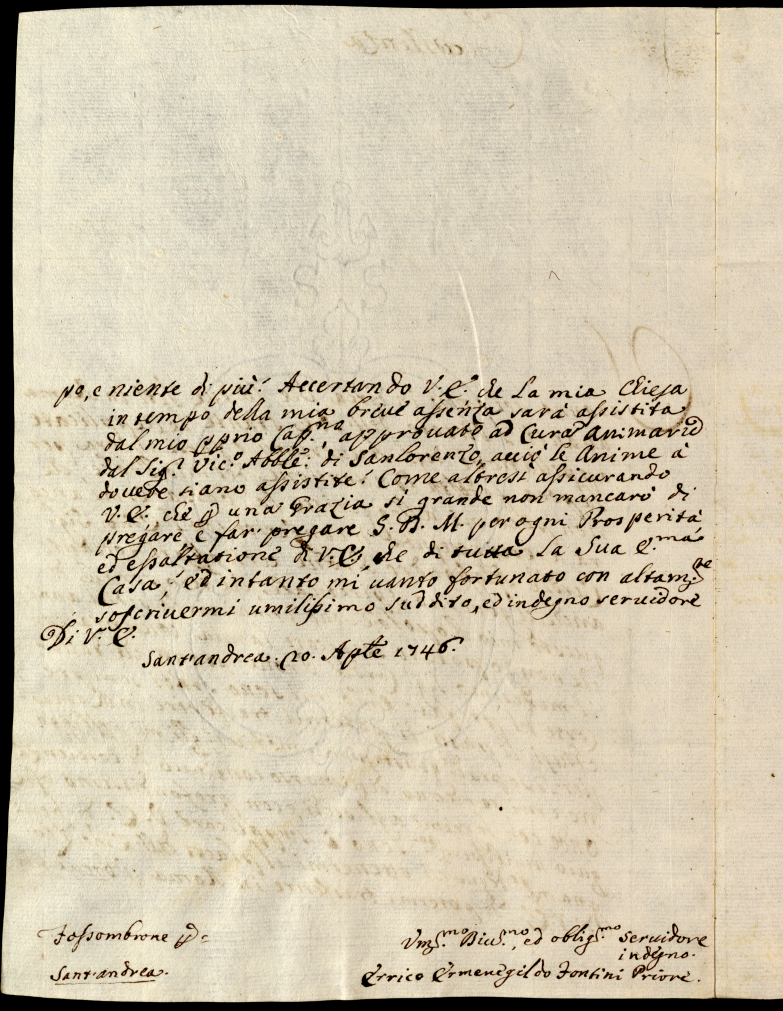 po, e niente di più. Accertando V. E. che La mia Chiesa
in tempo della mia breve assenza sarà assistita
dal mio pprio Cap.na approvato ad Cura Animaru
dal Sig.r Vic.o Abble: di SanLorenzo, acciò le Anime à
dovere siano assistite. Come altresì assicurando
V. E. che p una Grazia si grande non mancarò di
pregare e far pregare S. D. M. per ogni Prosperità
ed essaltatione di V. E, che di tutta La Sua E.ma
Casa, ed intanto mi vanto fortunato con altam.te
soscrivermi umilissimo suddito, ed indegno servidore
Di V. E.
Sant'andrea. 20. Aple 1746.
Fossombrone p
Sant'andrea.
Vm.mo ed oblig.mo servidore
indegno.
Errico Ermenegildo Fontini Priore.